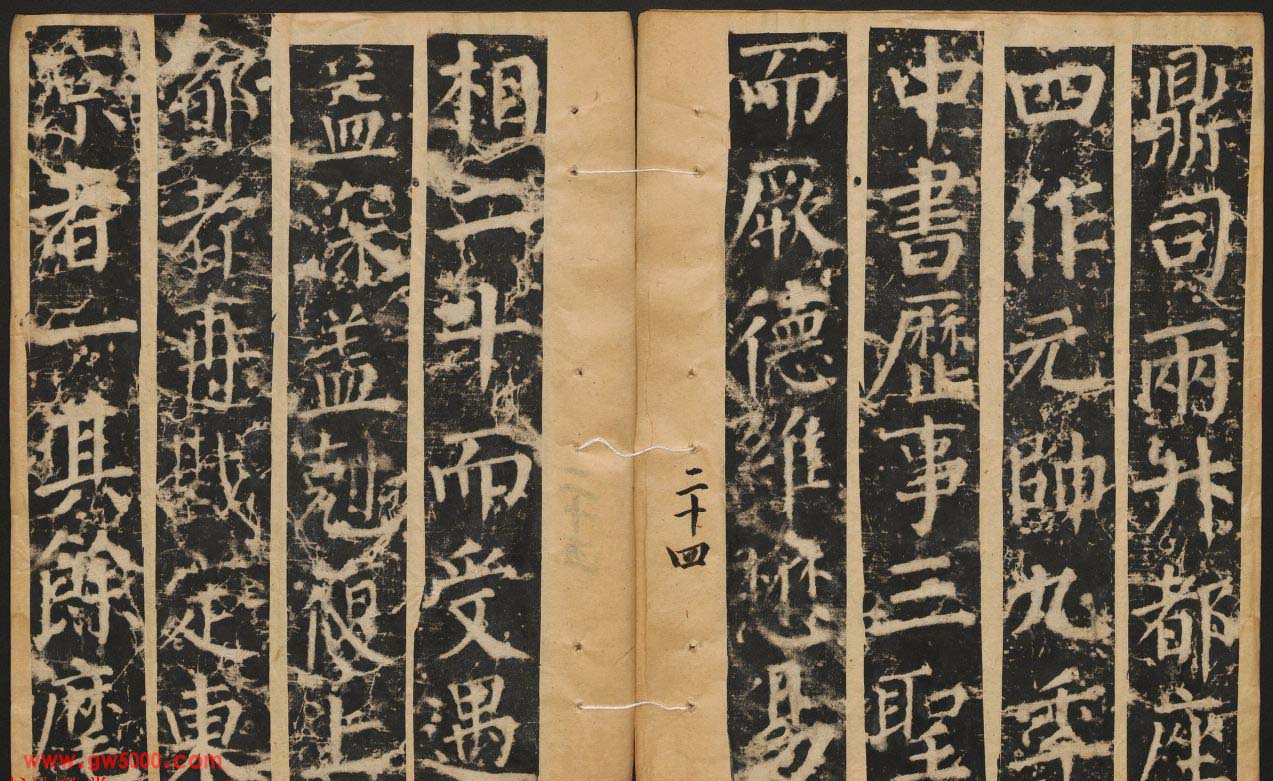 鼎司兩升都座
四作元帥九年
中書歷事三聖
而厥德維懋易
二十四
相二十而受遇
益深蓋剋復上
都者再戡定東
京者一其餘麾
www.gw5000.com